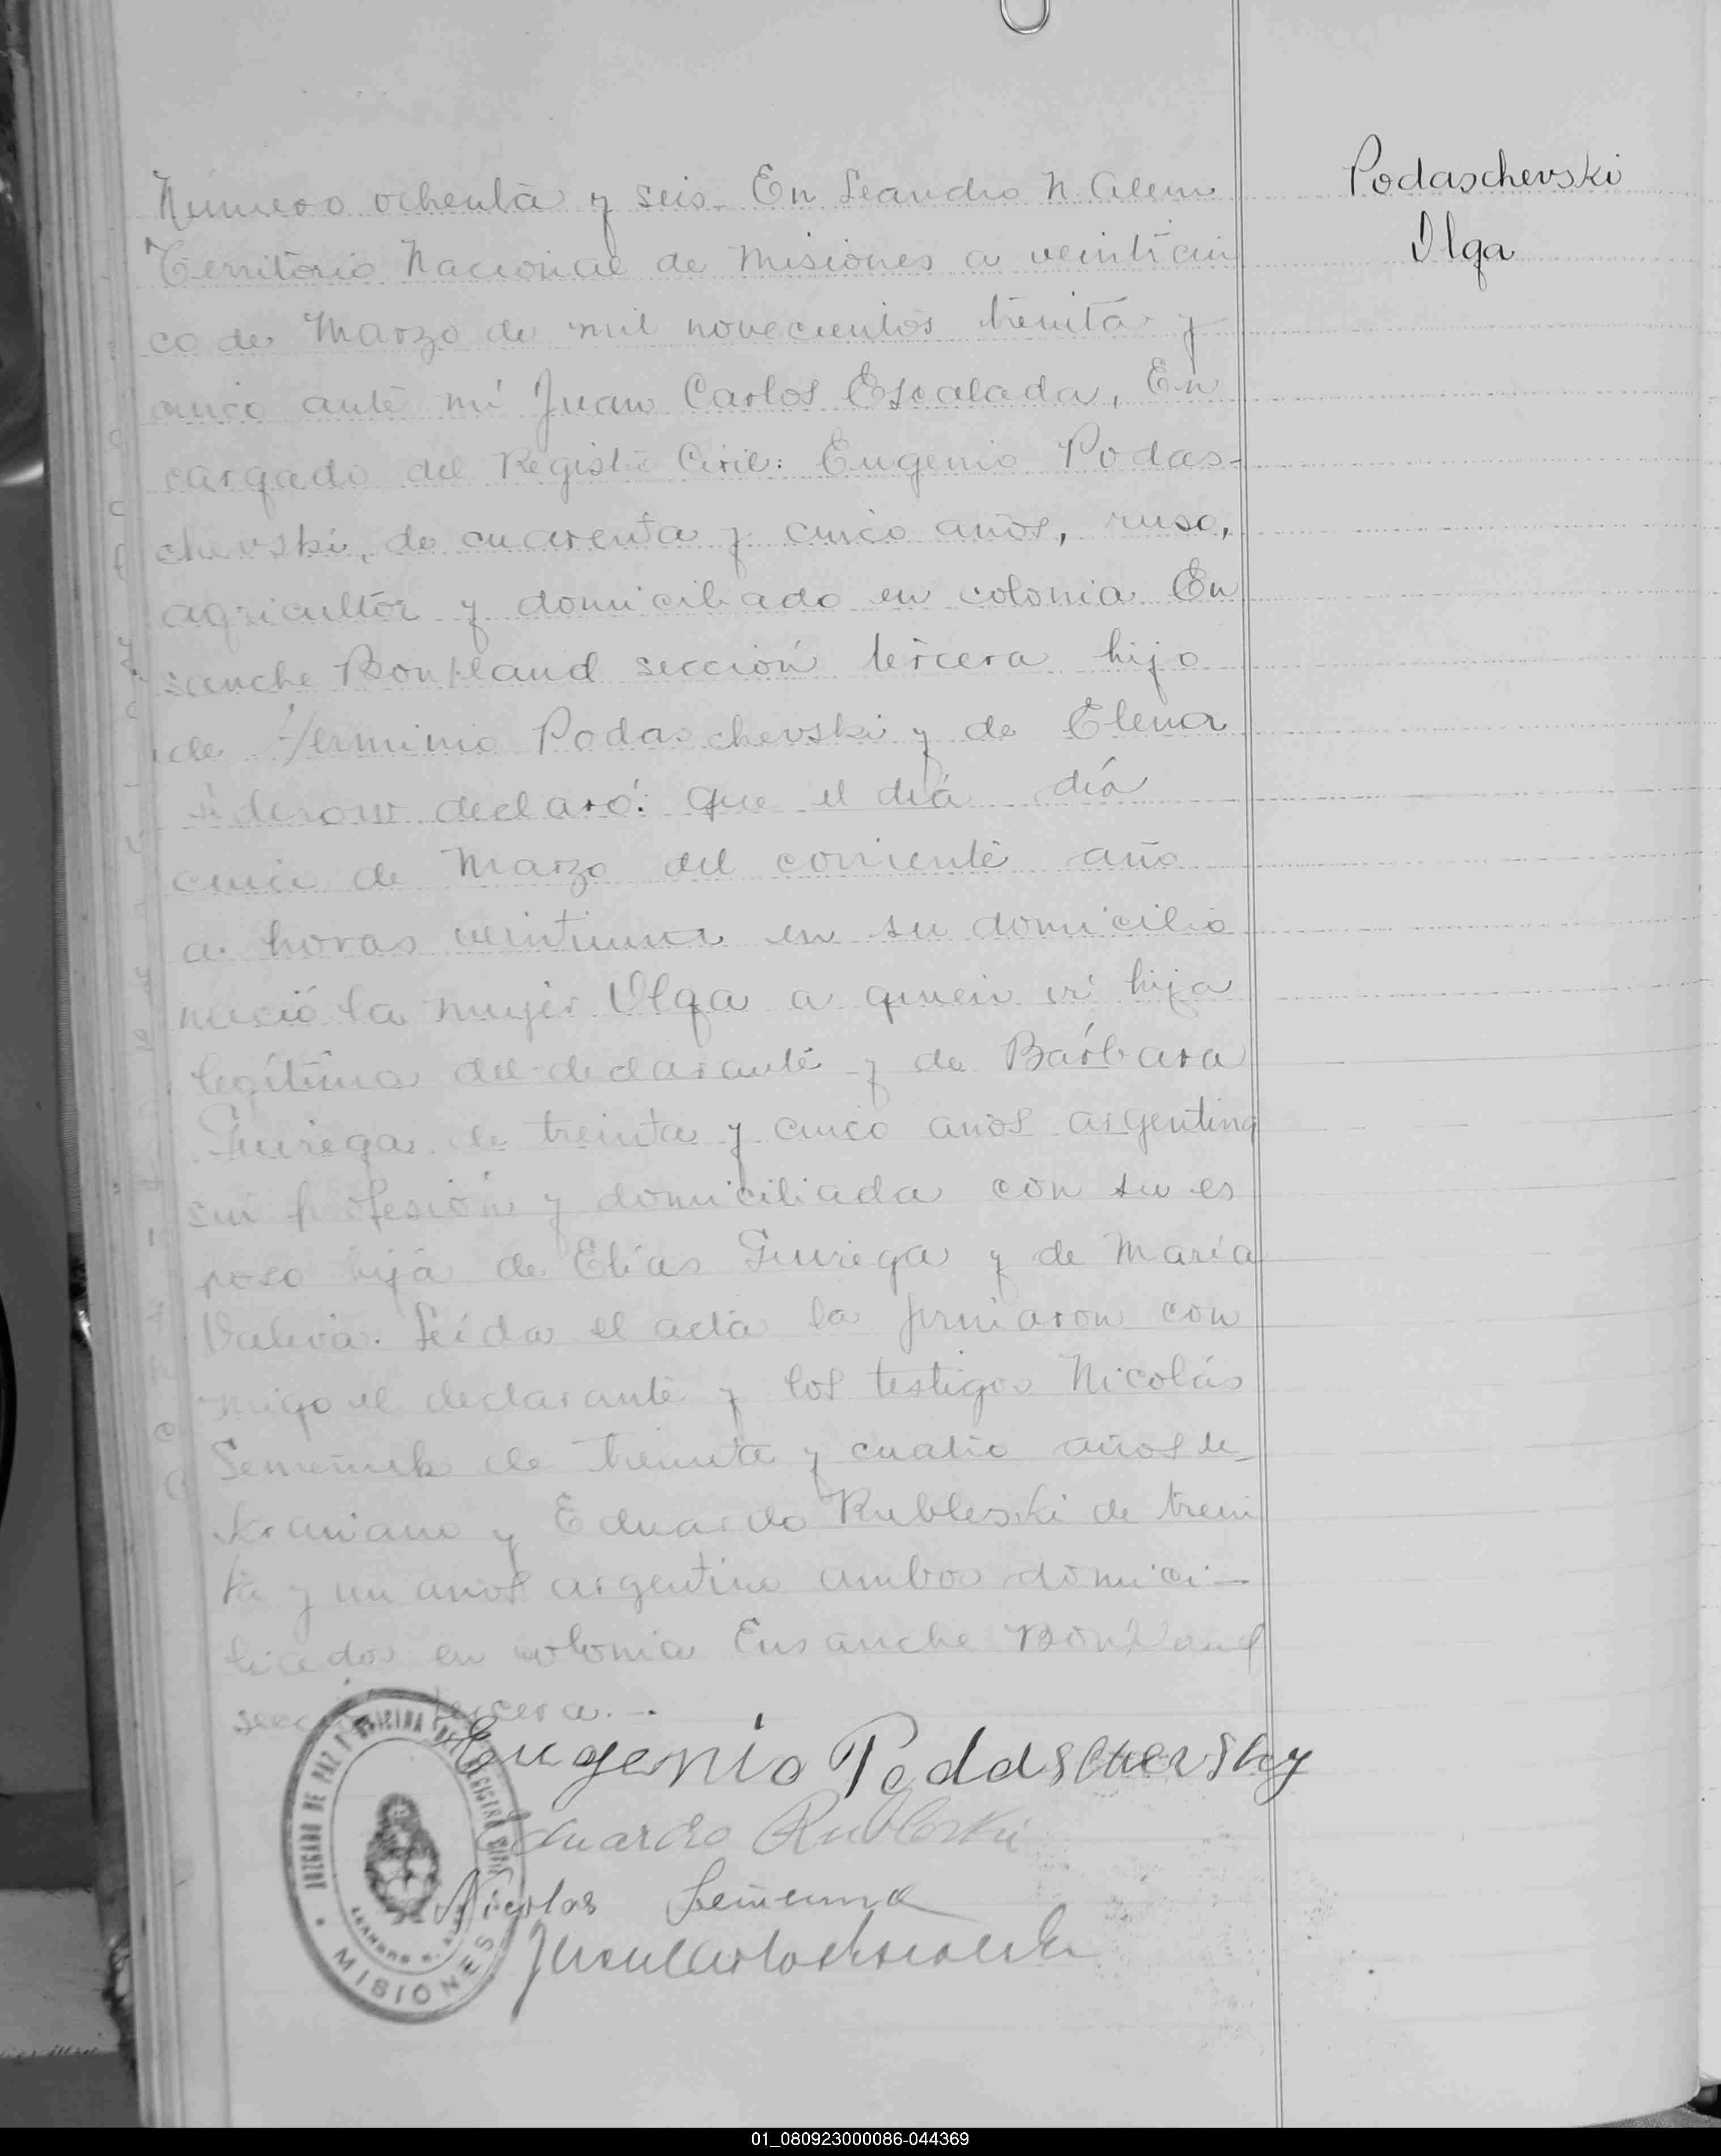 Podaschevski
Olga
Número ochenta y seis. En Leandro N. Alem
Territorio Nacional de Misiones a veinticin
co de Marzo de mil novecientos treinta y
cinco ante mí Juan Carlos Escalada, En
cargado del Registro Civil: Eugenio Podas-
chevski, de cuarenta y cinco años, ruso,
agricultor y domiciliado en colonia En
sanche Bonpland sección tercera hijo
de Herminio Podaschevski y de Elena
declaró: Que el día día
cinco de Marzo del corriente año
a horas veintiuna en su domicilio
nació la mujer Olga a quien vi hija
legítima del declarante y de Bárbara
de treinta y cinco años argentina
sin profesión y domiciliada con su es
poso hija de Elías y de María
Leída el acta la firmaron con
migo el declarante y los testigos Nicolás
de treinta y cuatro años u_
kraniano y Eduardo Rubleski de trein
ta y un años argentino ambos domici-
liados en colonia Ensanche Bonpland
sección tercera.-
Eugenio Podaschevsky
Eduardo Rubleski
Nicolas
JUZGADO DE PAZ Y OFICINA DEL REGISTRO CIVIL
LEANDRO N. ALEM
MISIONES
01_080923000086-044369